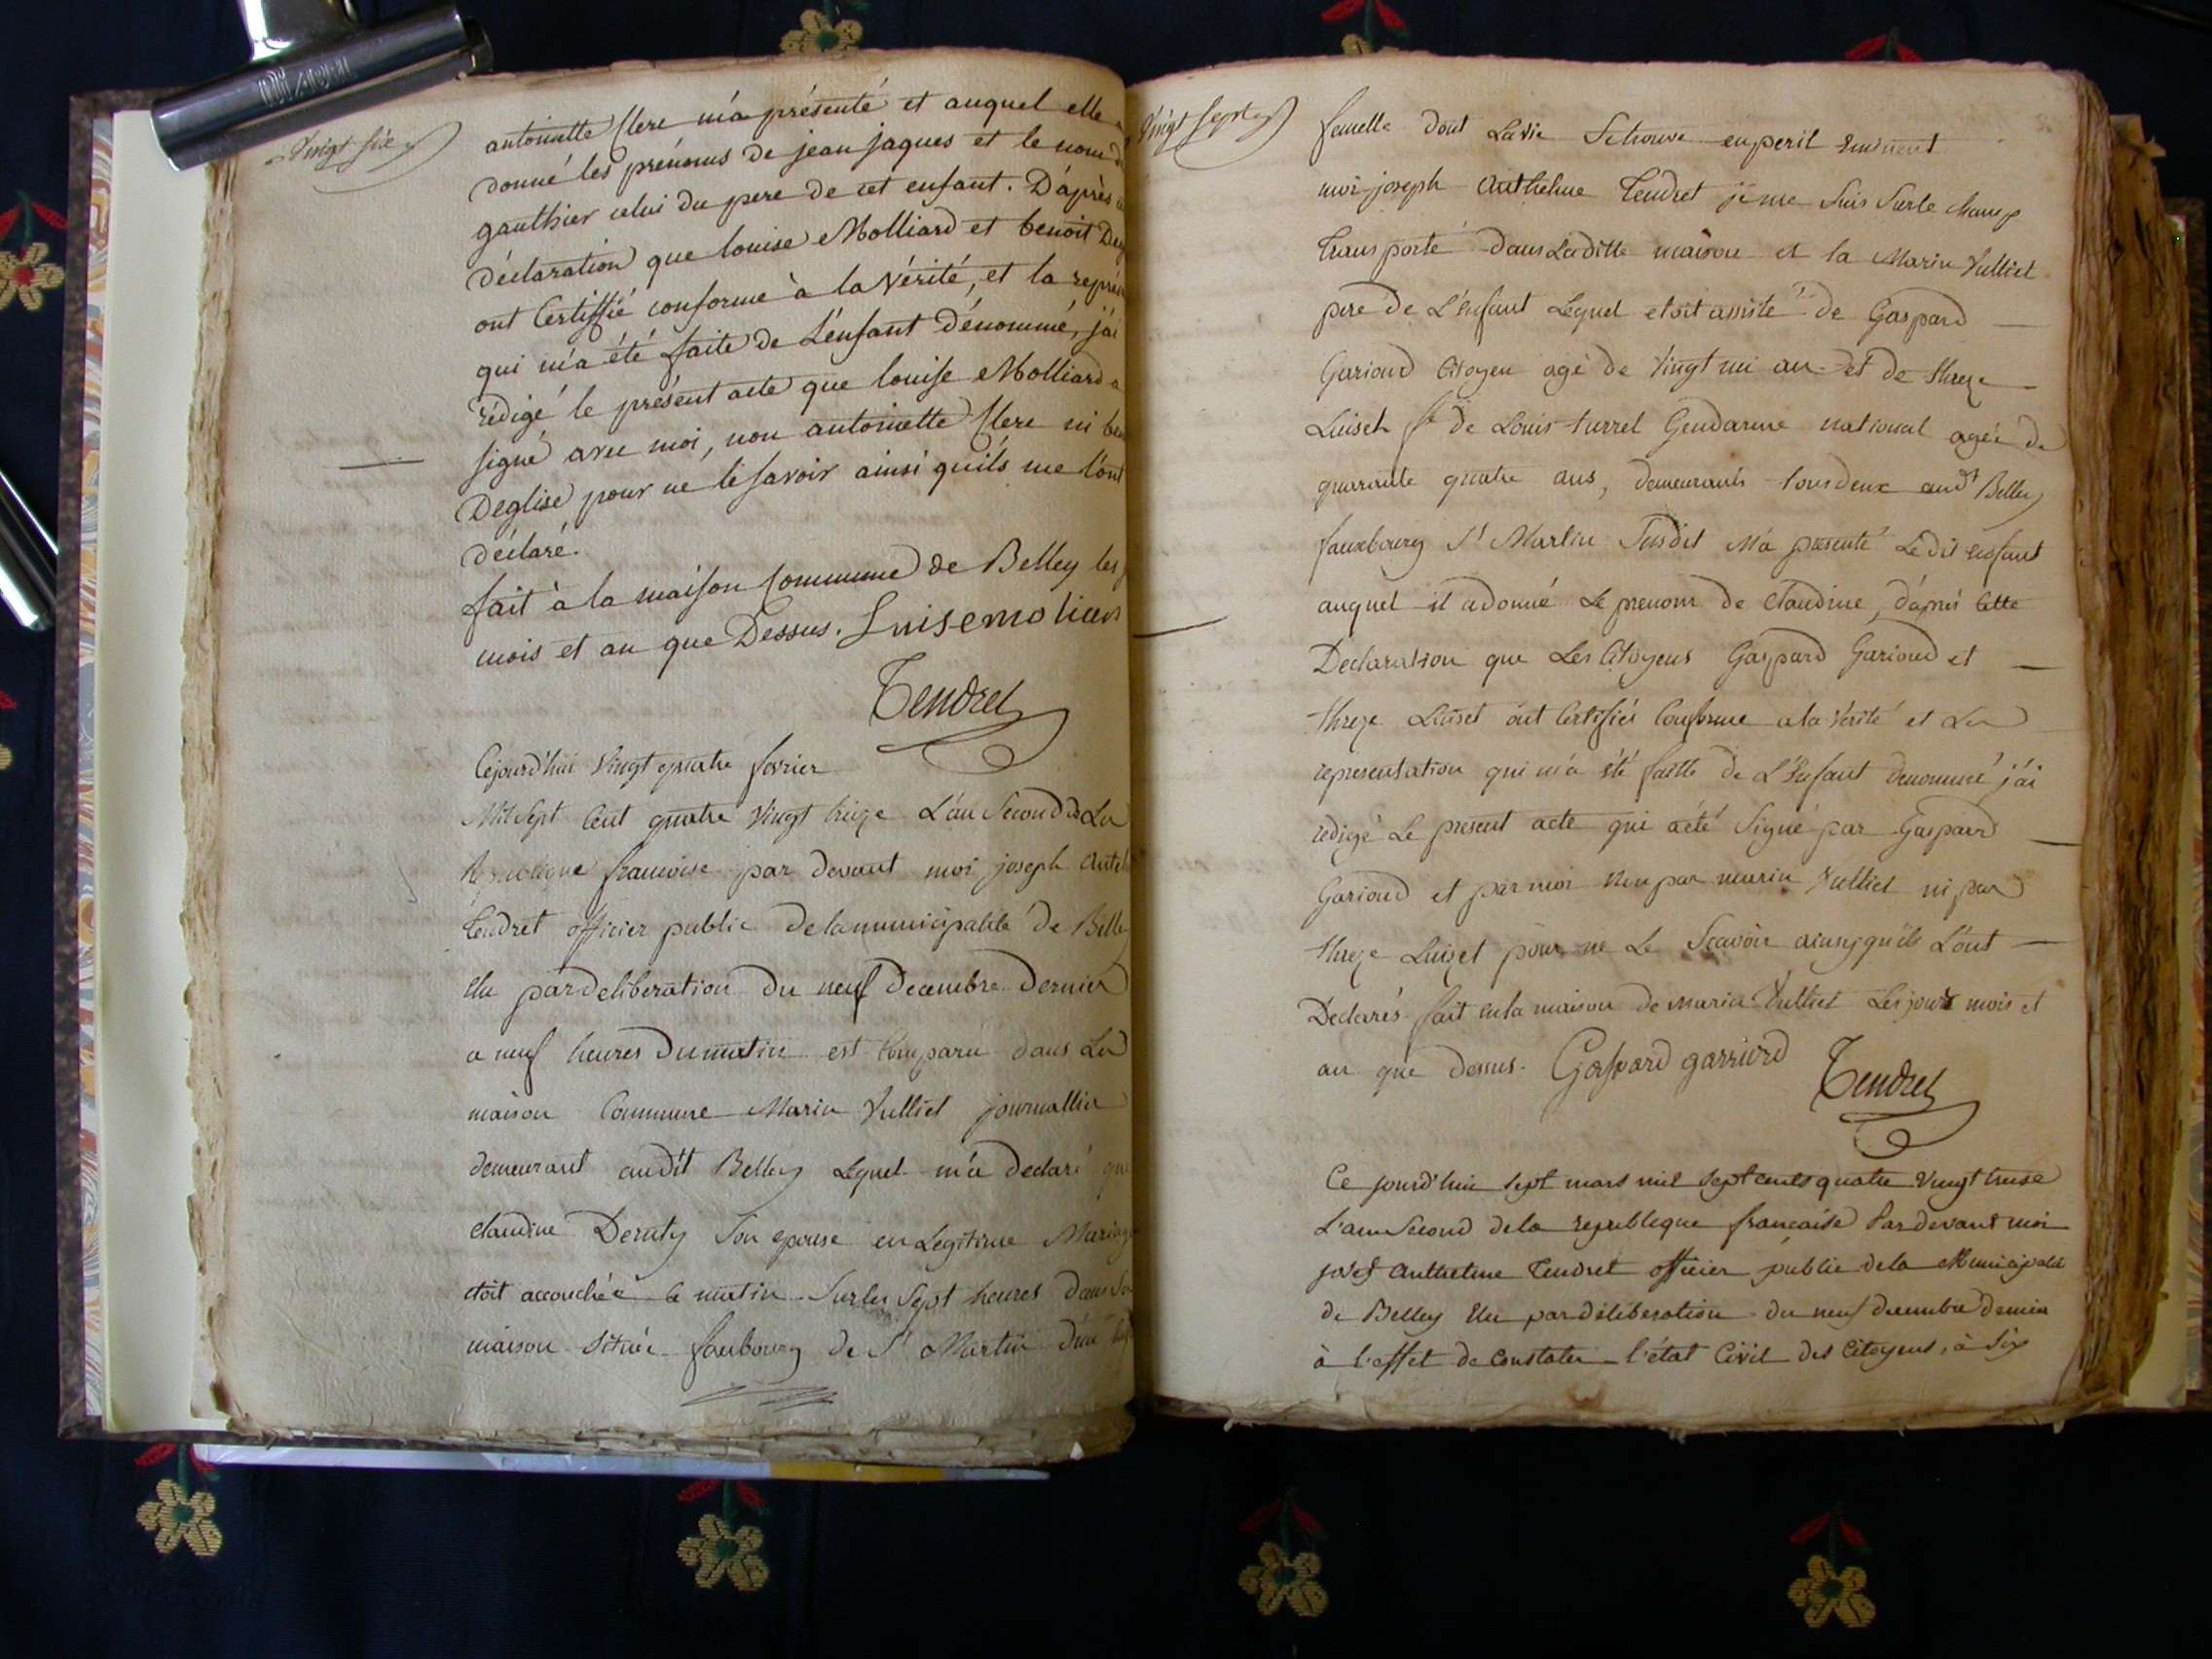 Vingt six
antoinette Clere m'a présenté et auquel elle
donné les prénoms de jean jaques et le nom de
gauthier celui du pere de cet enfant. D'après
déclaration que louise Molliard et benoit Deg
ont Certiffié conforme à la Vérité, et la représ
qui m'a été faite de L'enfant Dénommé, j'ai
rédigé le présent acte que louise Molliard a
signé avec moi, non antoinette Clere ni ben
Deglise pour ne le savoir ainsi qu'ils me l'ont
déclaré.
fait à la maison Commune de Belley les
mois et an que Dessus. Luisemoliard
Tendret
Cejourd'hui Vingt quatre fevrier
Mil Sept Cent quatre Vingt treize L'an Second de La
Republique francoise par devant moi joseph Antel
Tendret officier public delamunicipalité de Belle
Elu pardeliberation du neuf decembre dernier
a neuf heures dumatin est Comparu dans La
maison Commune Marin Vulliet journallier
demeurant audit Belley Lequel m'a declaré que
claudine Deruty Son epouse en Legitime Mariage
etoit accouchée ce matin Sur les Sept heures dans Sa
maison Située faubourg de St Martin d'un
Vingt sept
femelle dont La vie Setrouve enperil Eminent
moi joseph Anthelme Tendret je me Suis Surle champ
transporté dans Laditte maison et la Marin Vulliet
pere de L'Enfant Lequel etoit assisté de Gaspard
Gariond Citoyen agé de Vingt un an et de threze
Luiset fe de Louis turrel Gendarme national agée de
quarante quatre ans, demeurants tous deux audt Belley
fauxbourg St Martin Susdit M'a presenté Le dit enfant
auquel il adonné Le prenom de claudine, d'après Cette
Declaration que Les Citoyens Gaspard Gariond et
threze Luiset ont Certifiés Conforme ala Verité et La
representation qui m'a été faitte de L'Enfant denommé j'ai
redigé Le present acte qui aété Signé par Gaspard
Gariond et par moi non par marin Vulliet ni par
threze Luizet pour ne Le Scavoir ainsy qu'ils L'ont
Declarés fait enla maison de marin Vulliet Les jour mois et
an que dessus. Gaspard garriord
Tendret
Ce jourd'hui sept mars mil sept cents quatre Vingt treise
L'an Second dela republeque francaise Pardevant moi
josef Anthelme Tendret officier public dela Municipalité
de Belley Elu pardéliberation du neuf decembre dernier
à l'effet de Constater l'état Civil des Citoyens, à Six